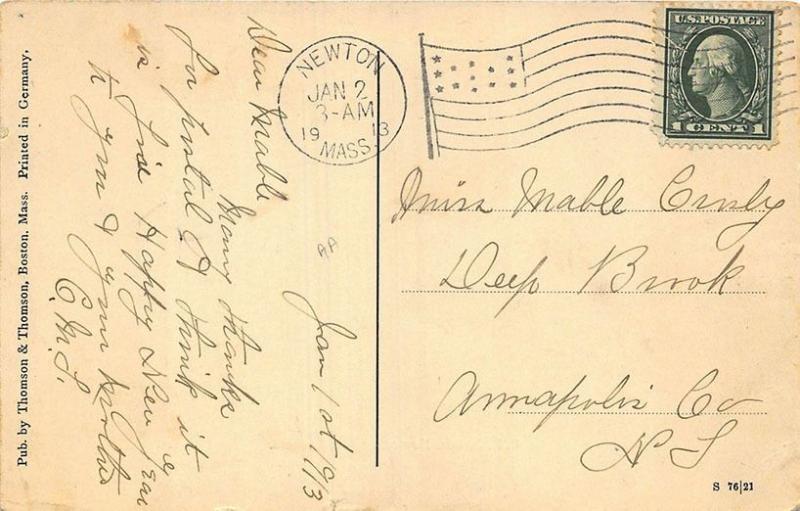 Pub. by Thomson & Thomson, Boston, Mass. Printed in Germany.
Jan 1st 1913
Dear Mable
Many thanks
for postal I think it
is fine Happy New Year
to you & your Mother
C. M. S.
NEWTON
JAN 2
3-AM
1913
MASS.
U.S. POSTAGE
1 CENT 1
Miss Mable
Deep Brook
Annapolis Co
N S
S 76|21